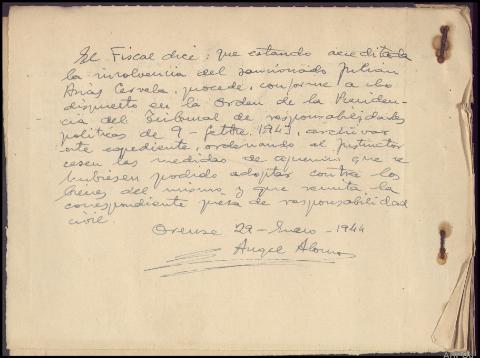 El Fiscal dice: que estando acreditada
la insolvencia del sancionado Julian
Arias Cervela, procede, conforme a lo
dispuesto en la Orden de la Presiden-
cia del Tribunal de responsabilidades
politicas de 9 - 1943, archivar
este expediente, ordenando al Instructor
cesen las medidas de que se
hubiesen podido adoptar contra los
bienes del mismo y que remita la
correspondiente pieza de responsabilidad
civil.
Orense 29 - Enero - 1944
Angel Alonso